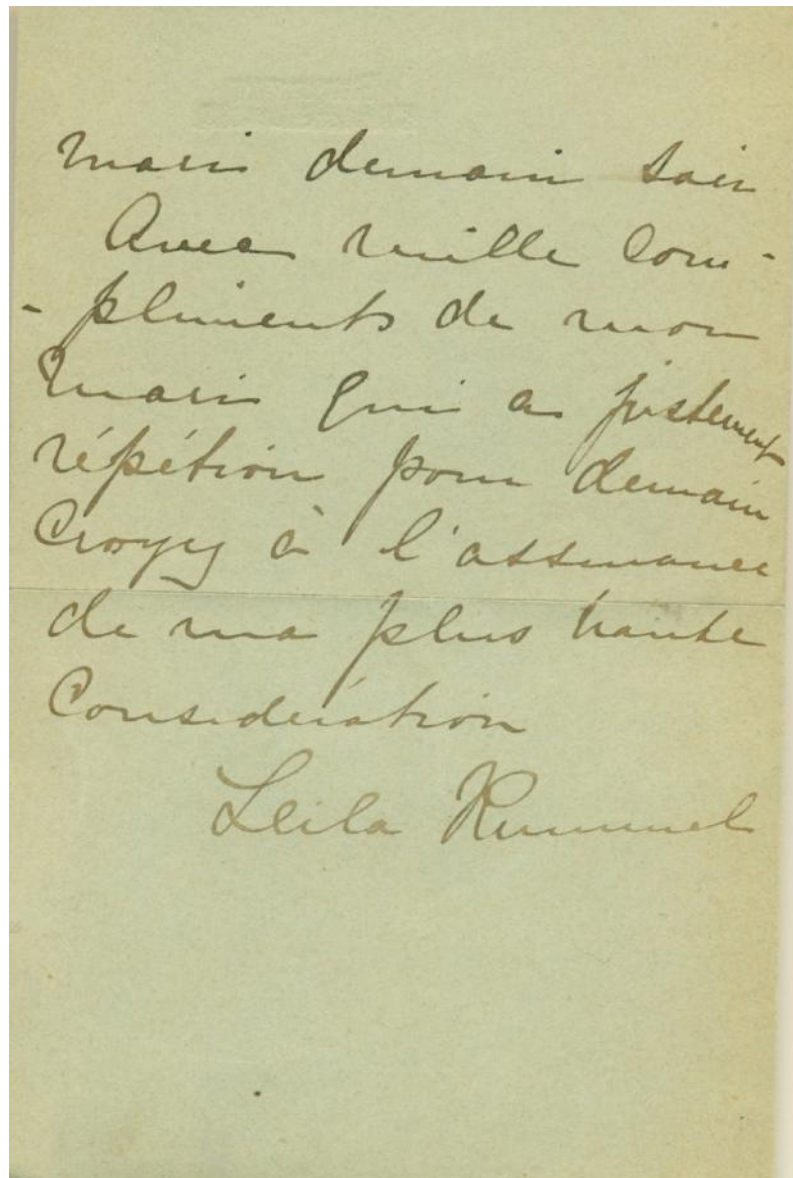 mari demain soir
Avec mille com-
-pliments de mon
mari qui a justement
répétition pour demain
Croyez à l'assurance
de ma plus haute
Considération
Leila Rummel